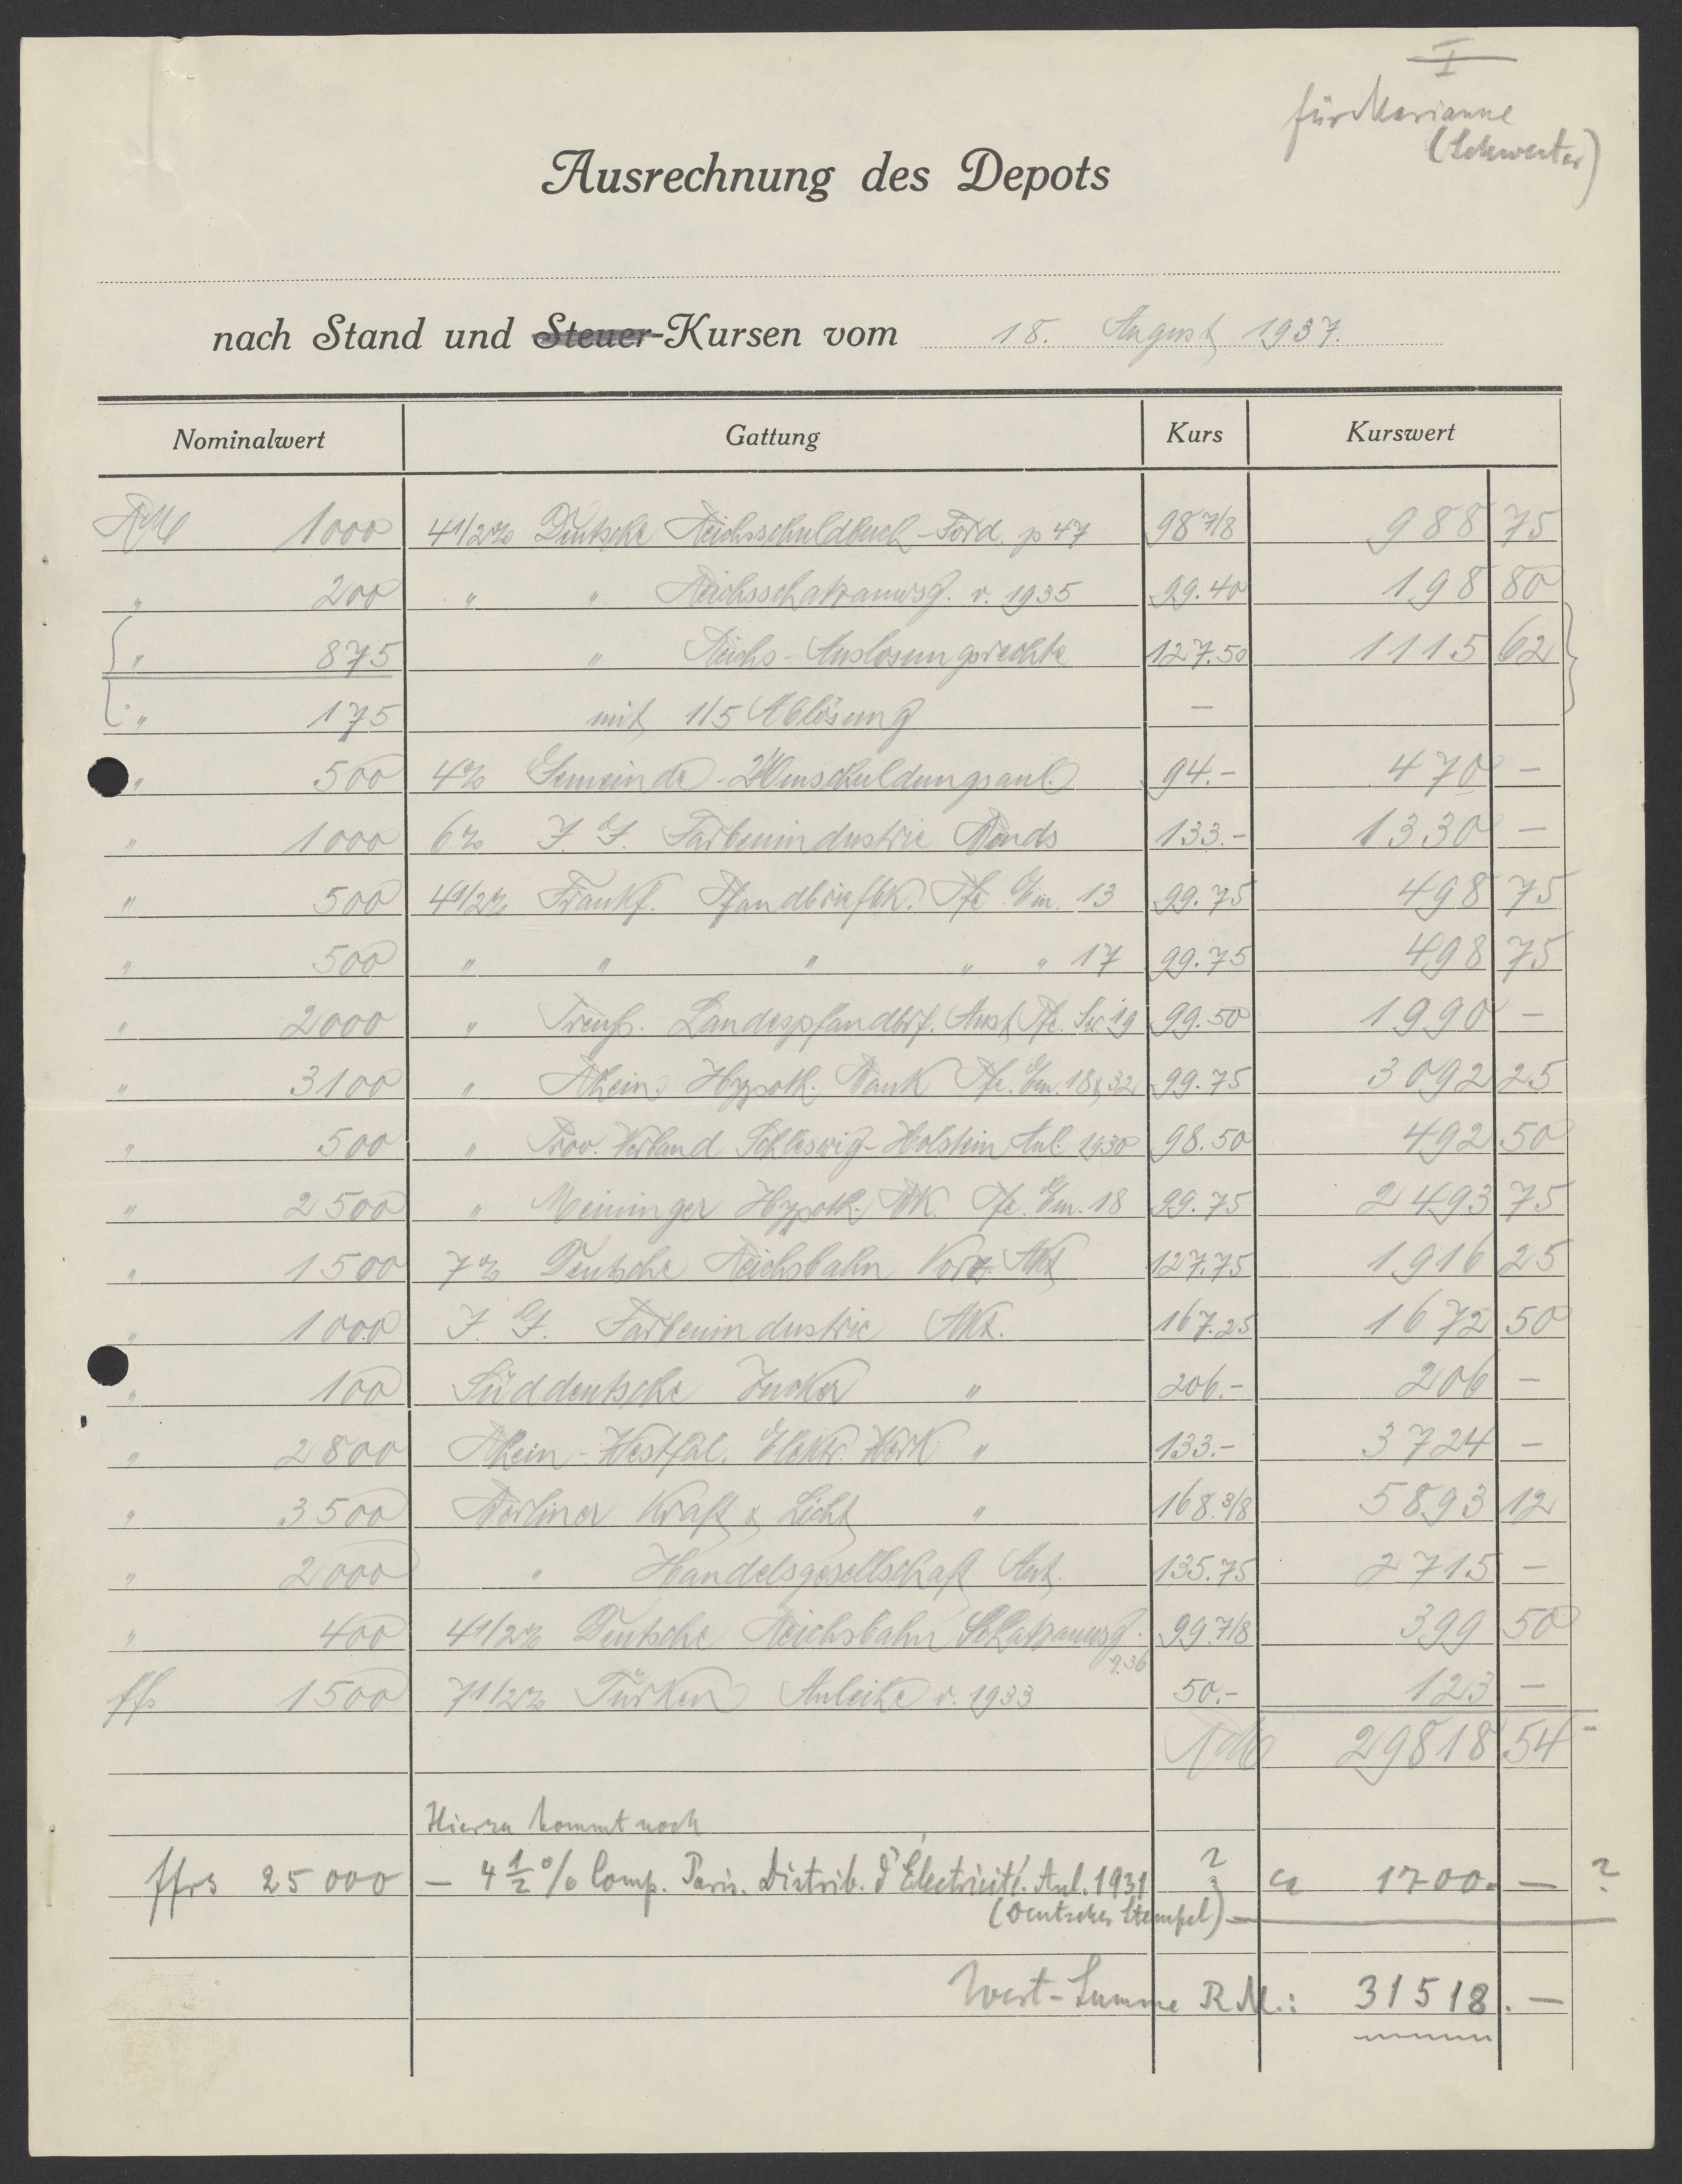 I
für Marianne
(Schwester)
Ausrechnung des Depots
nach Stand und Steuer-Kursen vom 18. August 1937.
Nominalwert Gattung Kurs Kurswert
RM 1000 4 1/2% Deutsche Reichsschuldbuch-Ford. p 47 98 7/8 988 75
" 200 " " Reichsschatzanwsg. v. 1935 99.40 198 80
" 875 " Reichs-Auslosungsrechte 127.50 1115 62
" 175 mit 1/5 Ablösung —
" 500 4% Gemeinde-Umschuldungsanl. 94.- 470 —
" 1000 6% I. G. Farbenindustrie Bonds 133.- 1330 —
" 500 4 1/2% Frankf. Pfandbriefbk. Pfe Em. 13 99.75 498 75
" 500 " " " " " 17 99.75 498 75
" 2000 " Preuß. Landespfandbrf. Anst Pfe. Ser 19 99.50 1990 —
" 3100 " Rhein. Hypoth. Bank Pfe. Em. 18 & 32 99.75 3092 25
" 500 " Prov. Verband Schleswig-Holstein Anl. 1930 98.50 492 50
" 2500 " Meininger Hypoth. Bk. Pfe. Em. 18 99.75 2493 75
" 1500 7% Deutsche Reichsbahn Vorz. Akt 127.75 1916 25
" 1000 I. G. Farbenindustrie Akt. 167.25 1672 50
" 100 Süddeutsche Zucker " 206.- 206 —
" 2800 Rhein-Westfäl. Elektr. Werk " 133.- 3724 —
" 3500 Berliner Kraft & Licht " 168.3/8 5893 12
" 2000 " Handelsgesellschaft Ant. 135.75 2715 —
" 400 4 1/2% Deutsche Reichsbahn Schatzanwsg. 99.7/8 399 50
v.36
ffs 1500 7 1/2% Türken Anleihe v. 1933 50.- 123 —
RM 29818 54
Hierzu kommt noch
ffrs 25 000 — 4 1/2 % Comp. Paris. Distrib. d'Électricité. Anl. 1931 ? ca 1700. — ?
(Deutscher Stempel) —
Wert-Summe R.M.: 31518. —